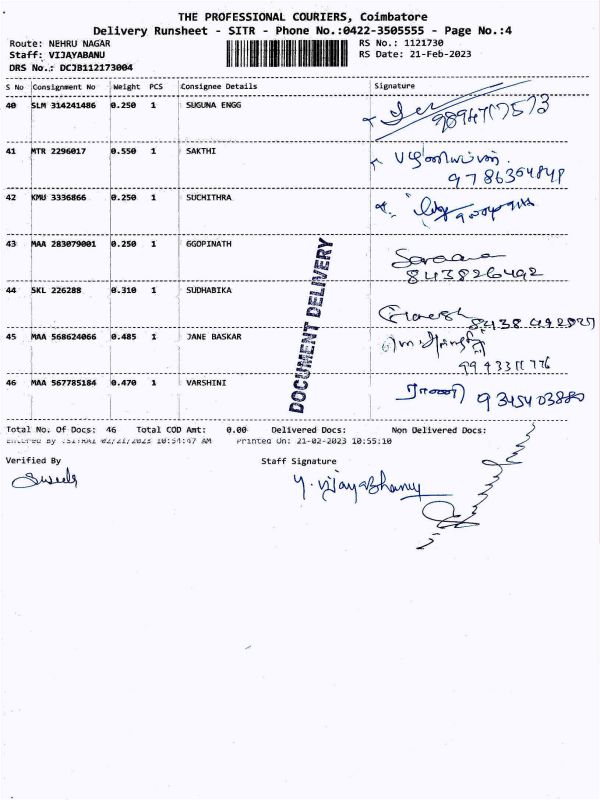 THE PROFESSIONAL COURIERS, Coimbatore
Delivery Runsheet - SITR - Phone No.:0422-3505555 - Page No.:4
Route: NEHRU NAGAR RS No.: 1121730
Staff: VIJAYABANU RS Date: 21-Feb-2023
DRS No.: DCJB112173004
S No Consignment No Weight PCS Consignee Details Signature
40 SLM 314241486 0.250 1 SUGUNA ENGG
9894717573
41 MTR 2296017 0.550 1 SAKTHI
9786354848
42 KMU 3336866 0.250 1 SUCHITHRA
43 MAA 283079001 0.250 1 GGOPINATH
843826492
44 SKL 226288 0.310 1 SUDHABIKA
45 MAA 568624066 0.485 1 JANE BASKAR
46 MAA 567785184 0.470 1 VARSHINI ராணி 9345403880
DOCUMENT DELIVERY
Total No. Of Docs: 46 Total COD Amt: 0.00 Delivered Docs: Non Delivered Docs:
Entered By 02/21/2023 10:54:47 AM Printed On: 21-02-2023 10:55:10
Verified By Staff Signature
Y. Vijayabhanu